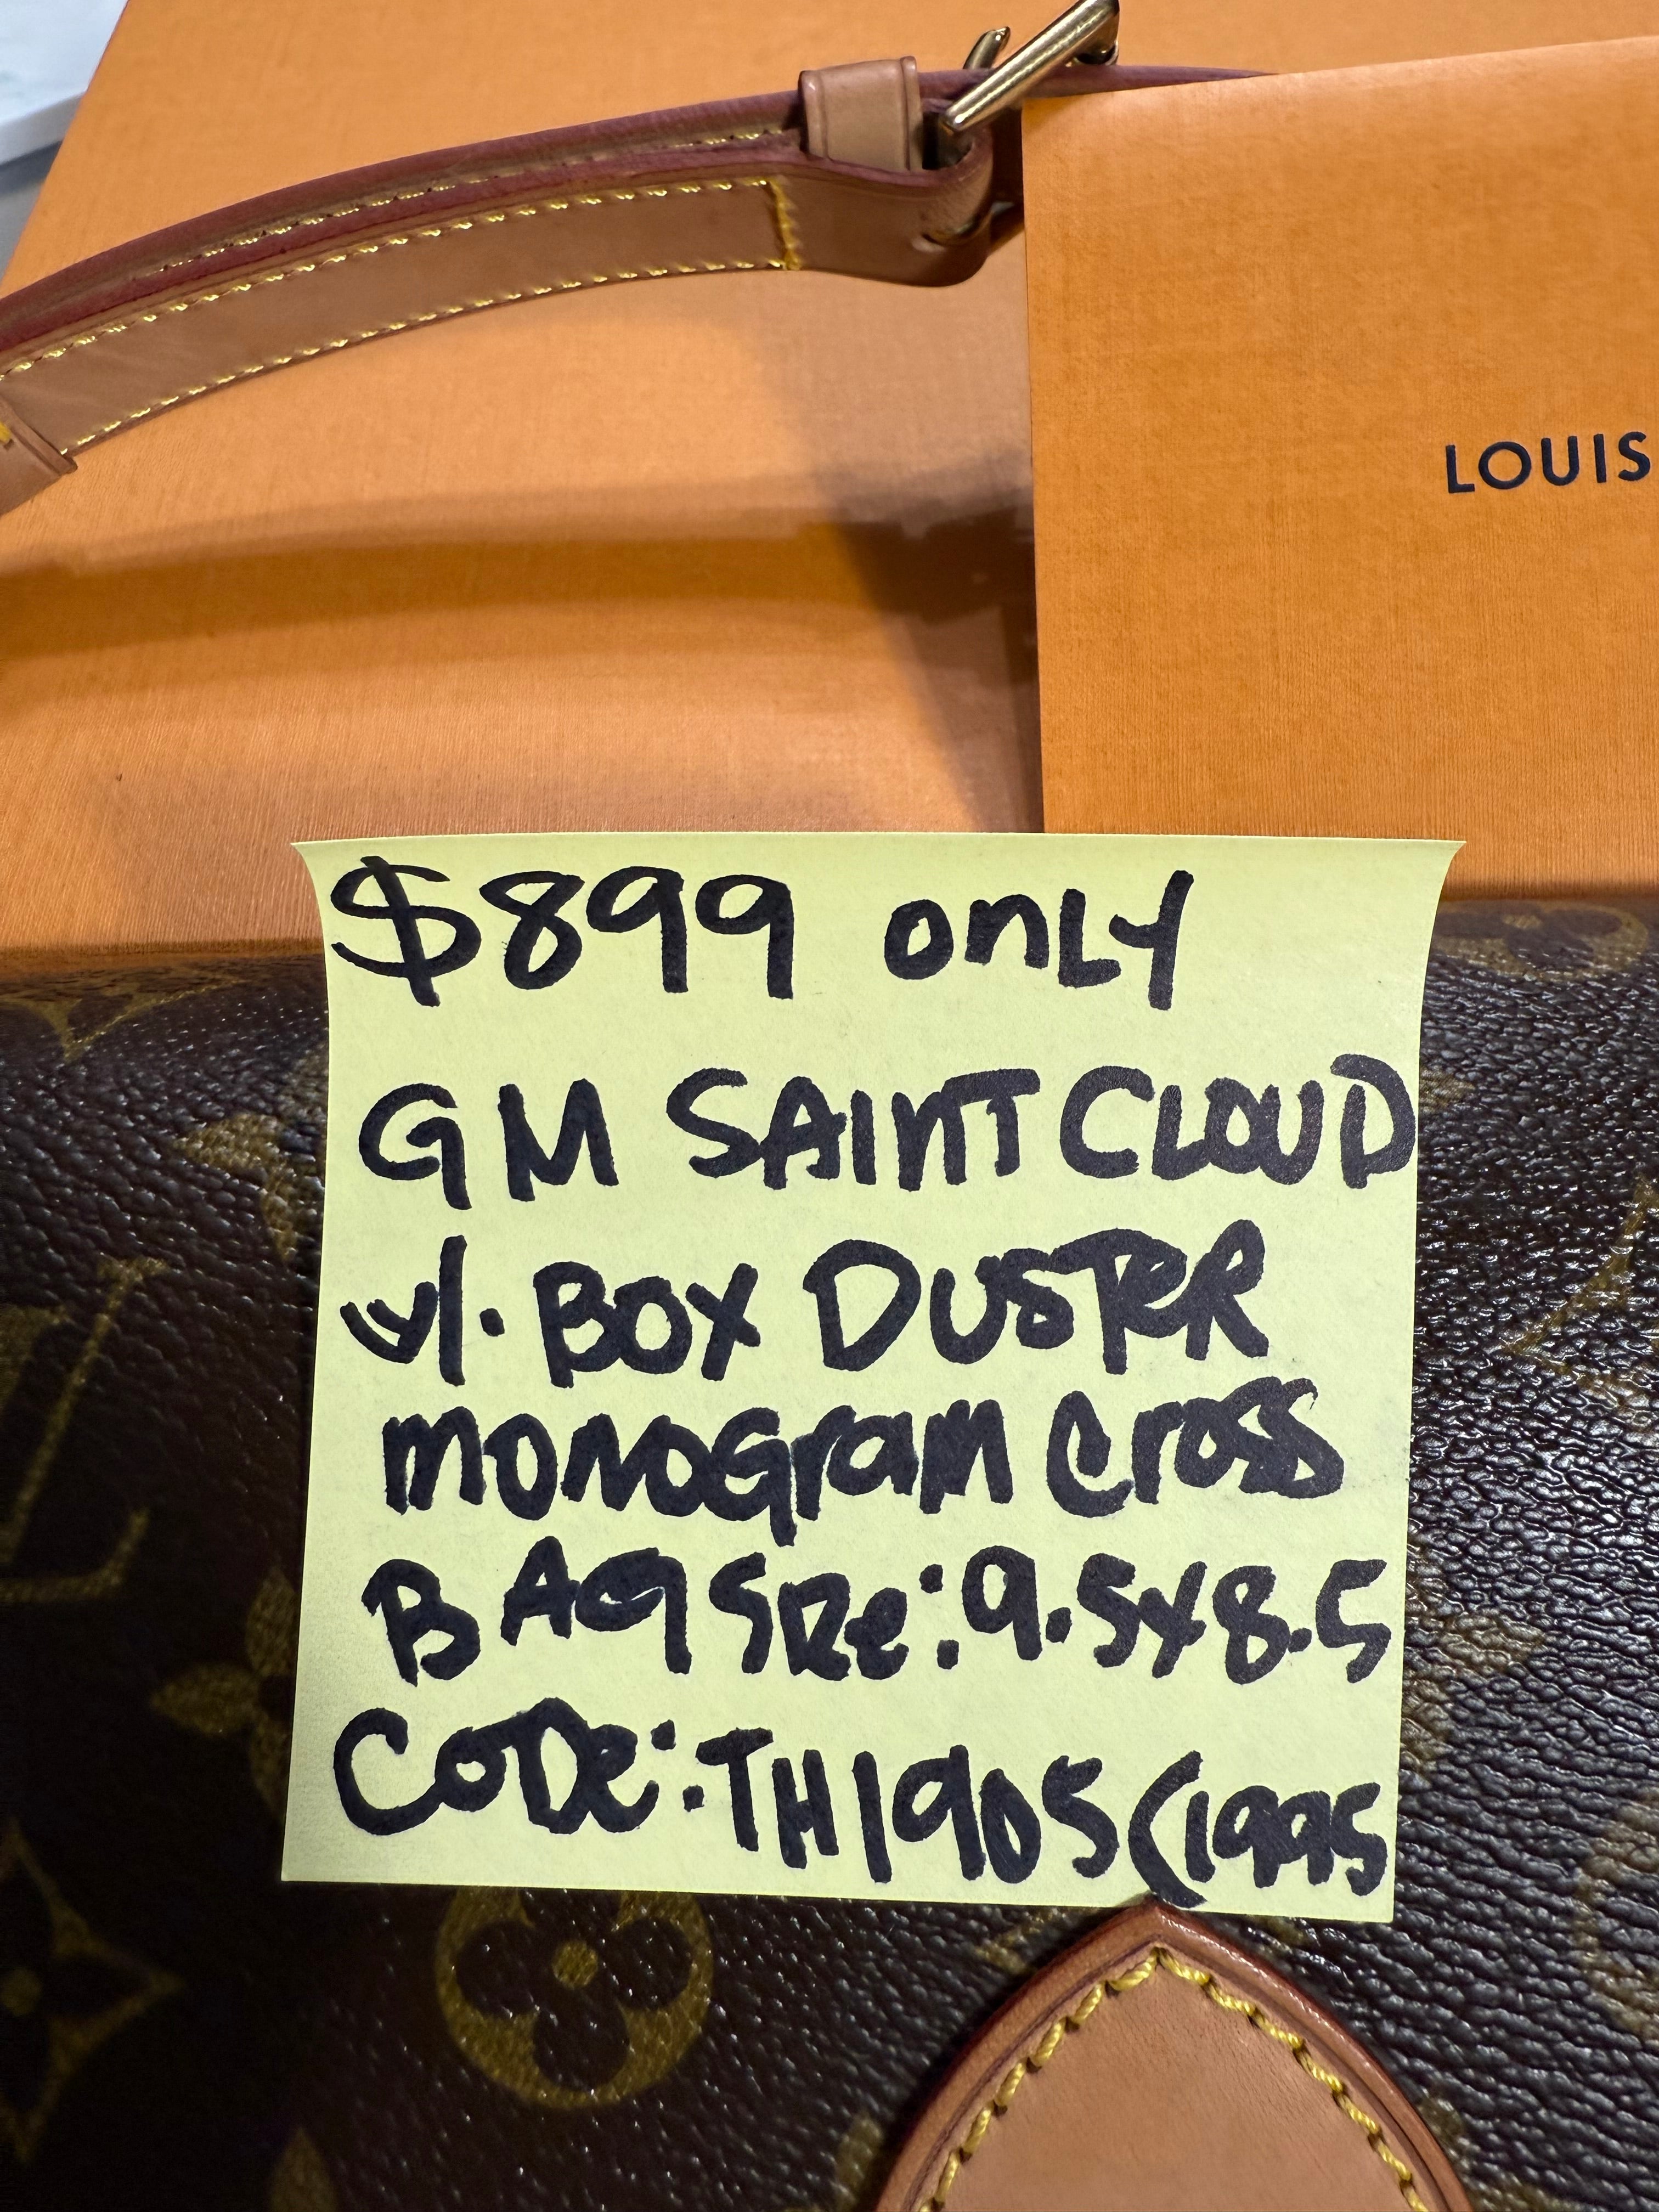 LOUIS
$899 only
GM SAINT CLOUD
w/. BOX DUSTER
MONOGram Cross
BAG Size: 9.5x8.5
Code: TH1905 (1995